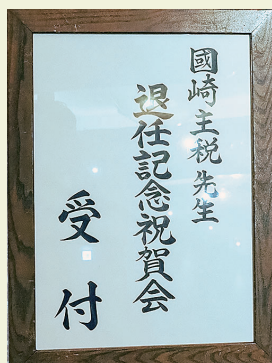 國崎主税先生
退任記念祝賀会
受付